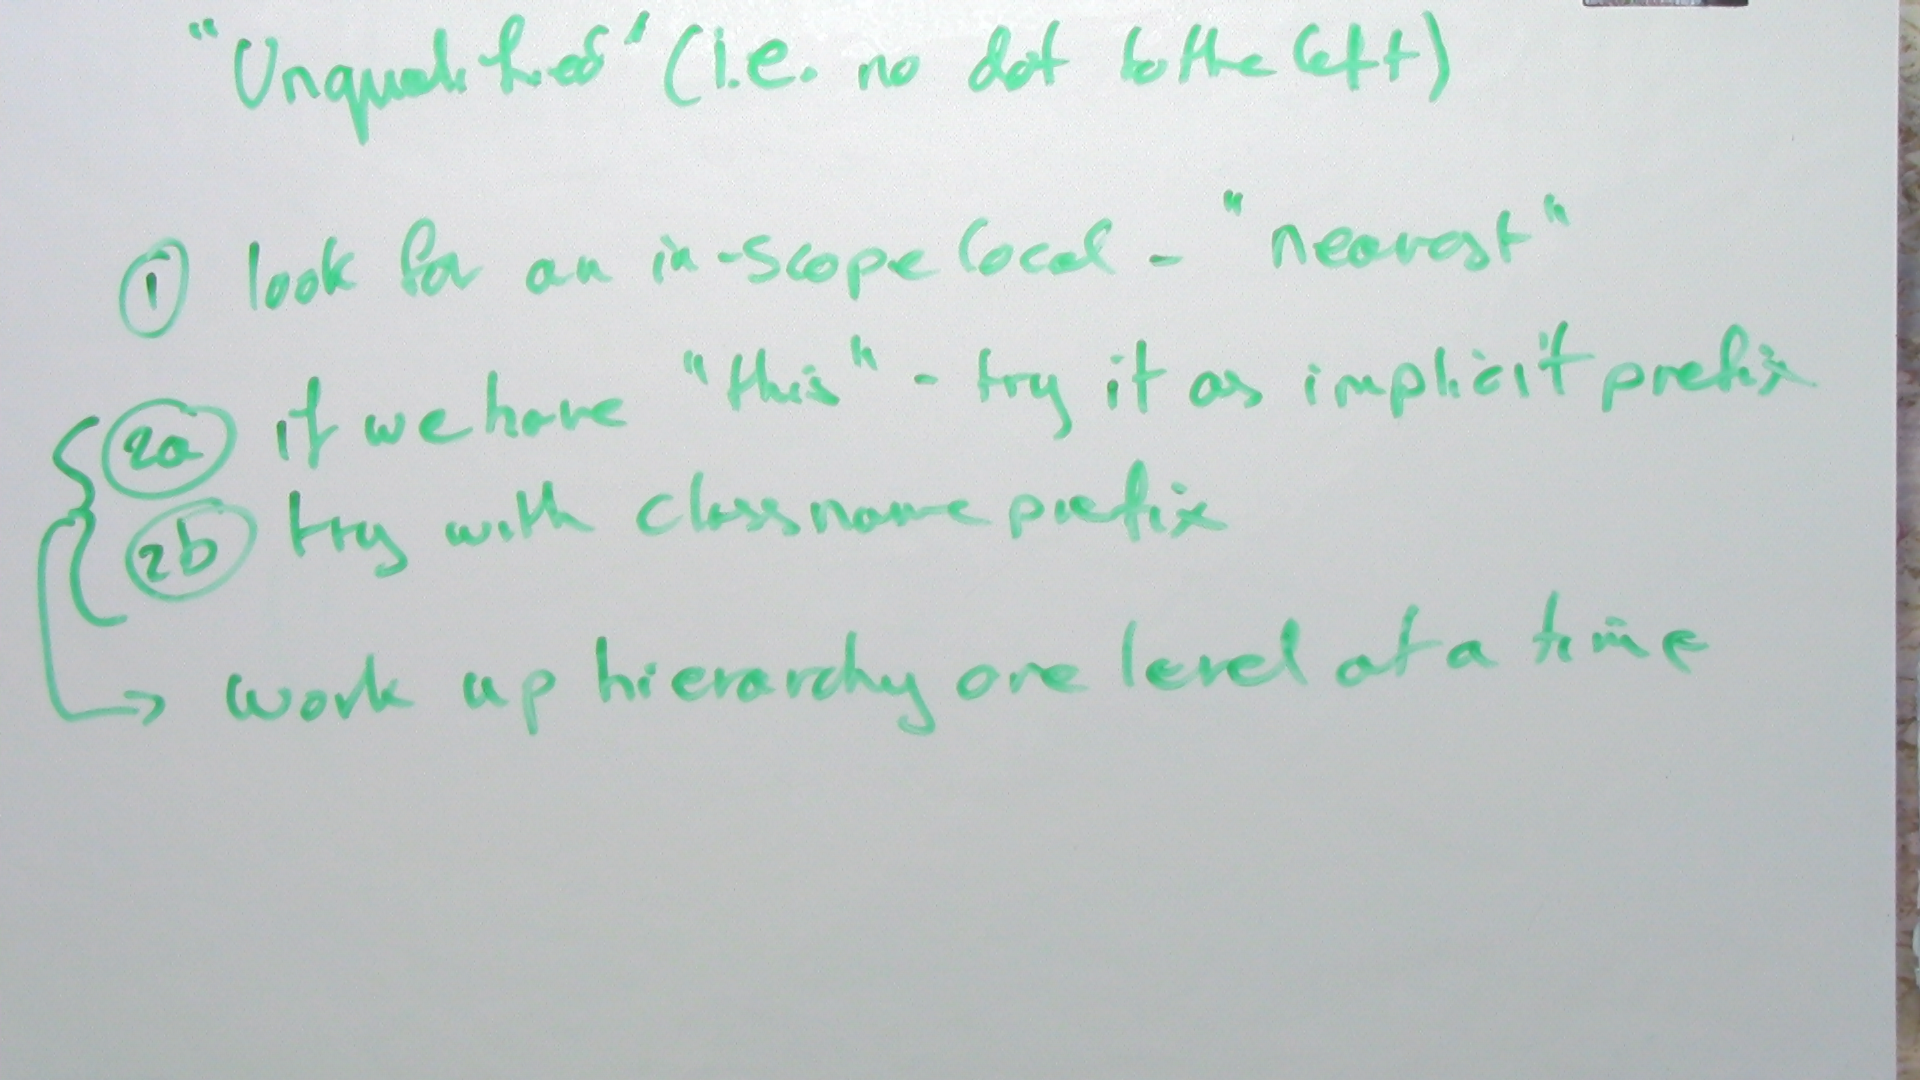 "Unqualified" (i.e. no dot to the left)
① look for an in-scope local - "nearest"
2a if we have "this" - try it as implicit prefix
2b try with classname prefix
→ work up hierarchy one level at a time